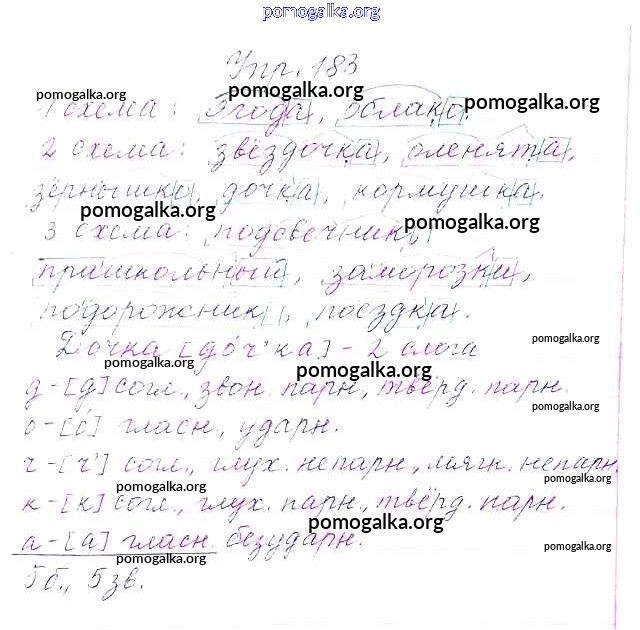 pomogalka.org
Упр. 183
pomogalka.org
pomogalka.org
pomogalka.org
1 схема: Ягода, облако.
2 схема: звёздочка, оленята,
зёрнышко, дочка, кормушка.
pomogalka.org
pomogalka.org
3 схема: подсвечник,
пришкольный, заморозки,
подорожник, поездка.
pomogalka.org
Дочка [до́ч'ка] - 2 слога
pomogalka.org
pomogalka.org
д - [д] согл., звон. парн., твёрд. парн.
pomogalka.org
о - [о́] гласн., ударн.
ч - [ч'] согл., глух. непарн., мягк. непарн.
pomogalka.org
pomogalka.org
к - [к] согл., глух. парн., твёрд. парн.
pomogalka.org
а - [а] гласн. безударн.
pomogalka.org
pomogalka.org
5б., 5 зв.